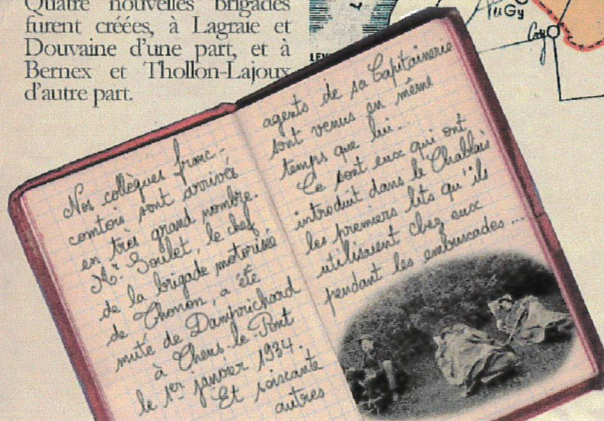 Quatre nouvelles brigades
furent créées, à Lagraie et
Douvaine d'une part, et à
Bernex et Thollon-Lajoux
d'autre part.
Nos collègues franc-
comtois sont arrivés
en très grand nombre.
Mr. Soulet, le chef
de la brigade motorisée
de Thonon, a été
muté de Damprichard
à Chens-le-Pont
le 1er janvier 1934.
Et soixante
autres
agents de sa Capitainerie
sont venus en même
temps que lui.
Ce sont eux qui ont
introduit dans le Chablais
les premiers lits qu'ils
utilisaient chez eux
pendant les embuscades...